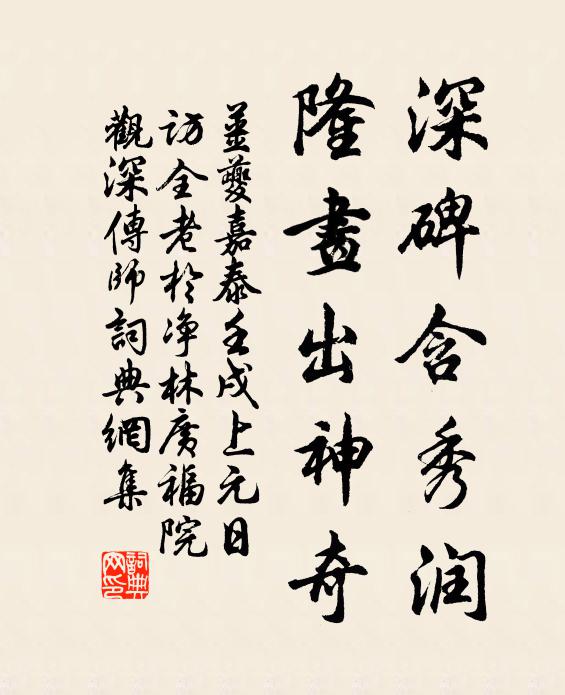 深碑含秀润
隆畫出神奇
姜夔嘉泰壬戌上元日
访全老於净林廣福院
觀深傅師詞典網集
詞典网印